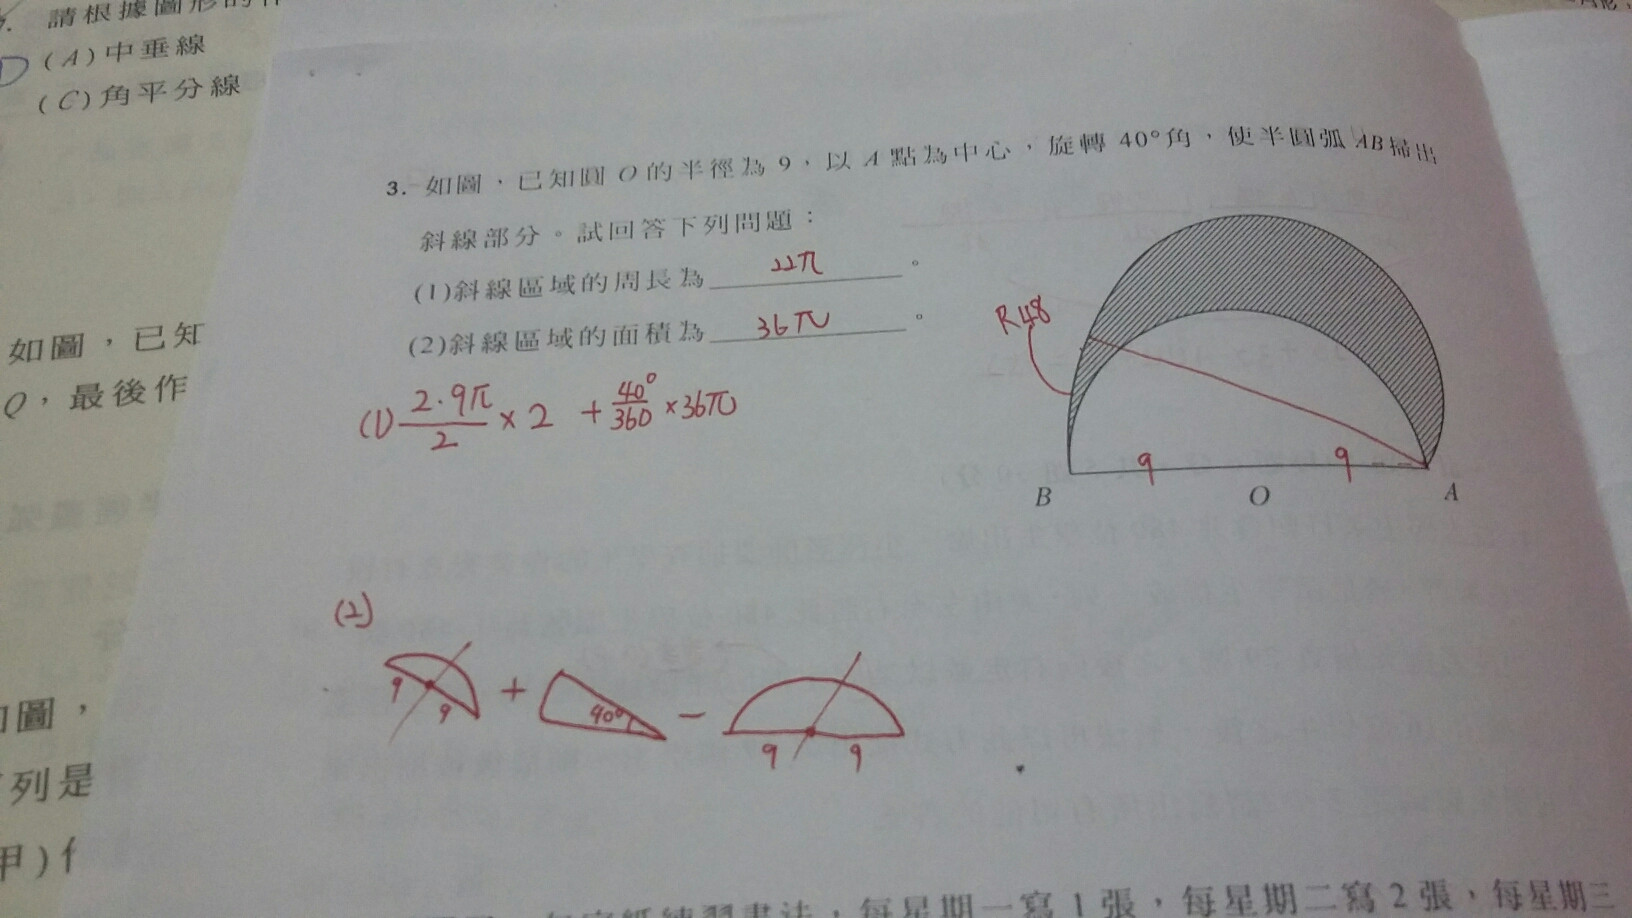 請根據圖形的作
(A)中垂線
(C)角平分線
3. 如圖，已知圓 O 的半徑為 9，以 A 點為中心，旋轉 40°角，使半圓弧 AB 掃出
斜線部分。試回答下列問題：
(1)斜線區域的周長為 22π 。
(2)斜線區域的面積為 36π 。
(1) 2·9π/2 × 2 + 40°/360 × 36π
R48
9 9
B O A
(2)
9 9 + 40° − 9 9
如圖，已知
Q，最後作
如圖，
列是
甲)
每星期一寫 1 張，每星期二寫 2 張，每星期三